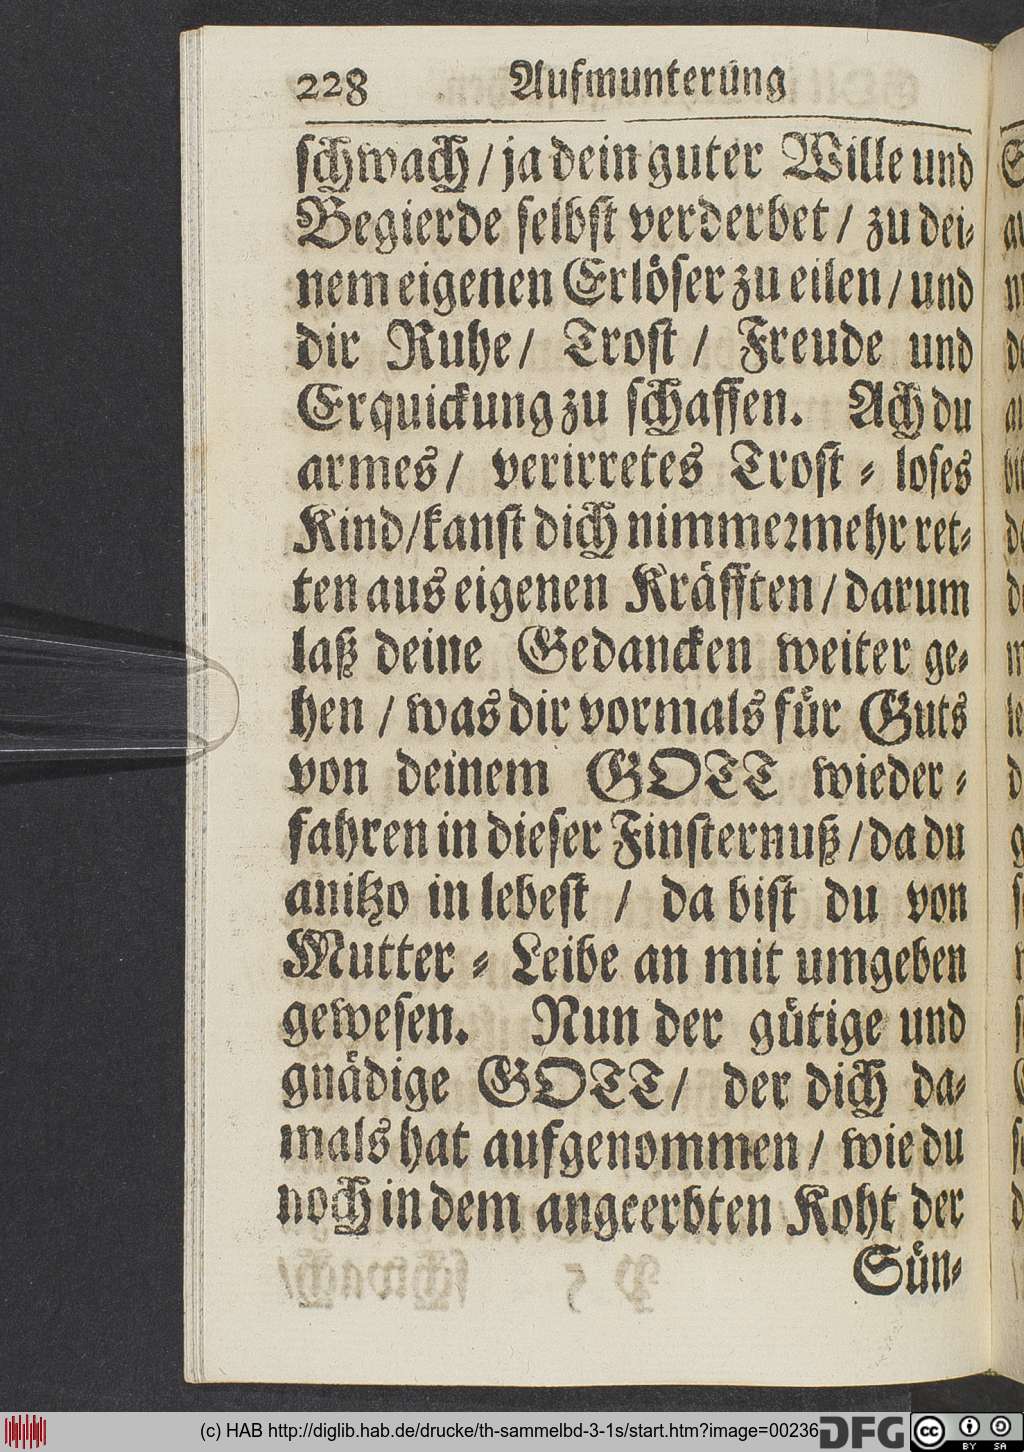 228 Aufmunterung
schwach / ja dein guter Wille und
Begierde selbst verderbet / zu dei-
nem eigenen Erlöser zu eilen / und
dir Ruhe / Trost / Freude und
Erquickung zu schaffen. Ach du
armes / verirretes Trost - loses
Kind / kanst dich nimmermehr ret-
ten aus eigenen Kräfften / darum
laß deine Gedancken weiter ge-
hen / was dir vormals für Guts
von deinem GOTT wieder-
fahren in dieser Finsternuß / da du
anitzo in lebest / da bist du von
Mutter - Leibe an mit umgeben
gewesen. Nun der gütige und
gnädige GOTT / der dich da-
mals hat aufgenommen / wie du
noch in dem angeerbten Koht der
Sün-
(c) HAB http://diglib.hab.de/drucke/th-sammelbd-3-1s/start.htm?image=00236
DFG cc BY SA